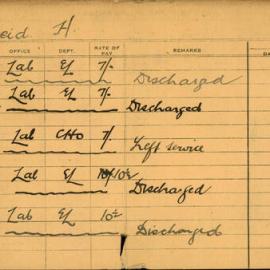 eid H.
OFFICE DEPT. RATE OF PAY REMARKS
Lab EL 7/- Discharged
Lab EL 7/- Discharged
Lab CHO 7/- Left service
Lab EL 10/- Discharged
Lab EL 10/- Discharged